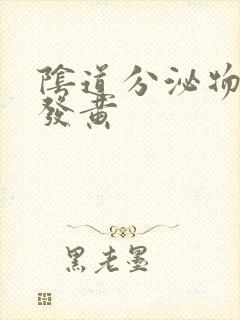 陰道分泌物
發黃
黑老墨